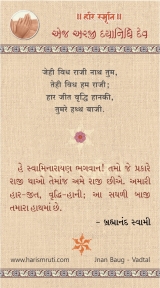 ॥ હરિ સ્મૃતિ ॥
એજ અરજી દયાનિધિ દેવ
જેહી વિધ રાજી નાથ તુમ,
તેહી વિધ હમ રાજી;
હાર જીત વૃદ્ધિ હાનકી,
તુમરે હથ્થ બાજી.
હે સ્વામિનારાયણ ભગવાન! તમો જે પ્રકારે
રાજી થાઓ તેમાંજ અમે રાજી છીએ. અમારી
હાર-જીત, વૃદ્ધિ-હાની; આ સઘળી બાજી
તમારા હાથમાં છે.
- બ્રહ્માનંદ સ્વામી
www.harismruti.com
Jnan Baug - Vadtal